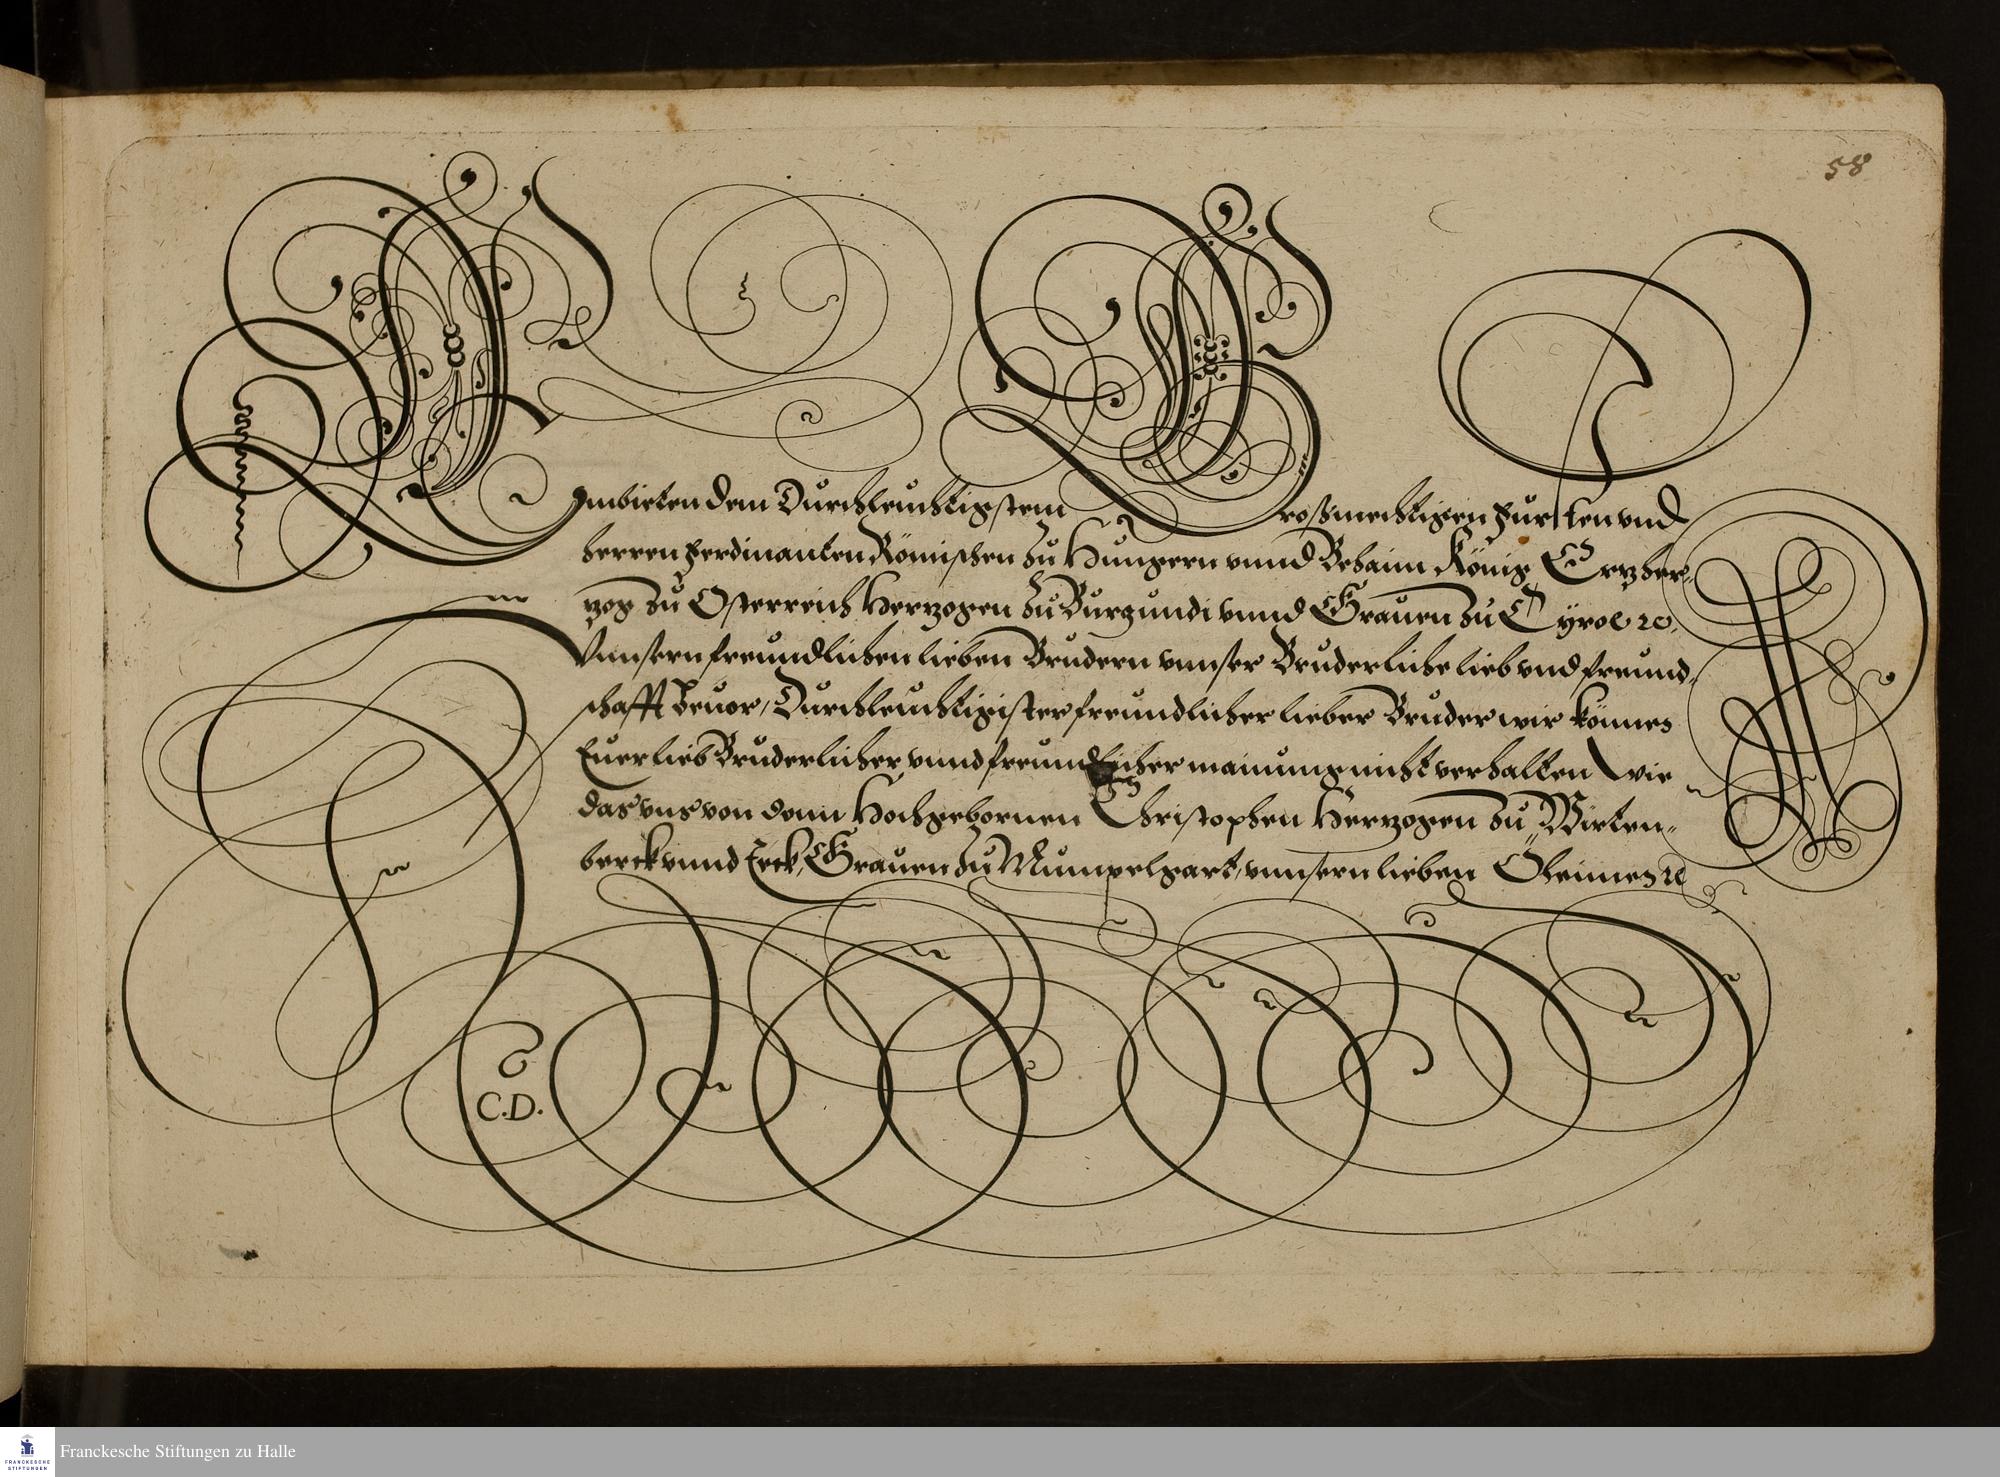 58
Embieten dem Durchleuchtigstem Großmechtigen Fursten vnd
herren Ferdinanten Römischen zu Hungern vnnd Behaim König Ertzher,
tzog zu Osterreich Hertzogen zu Burgundi vnnd Grauen zu Tyrol ꝛc.
Vnnsern freundlichen lieben Brudern vnnser Bruderliche lieb vnd freund,
schafft zeuor, Durchleuchtigister freundlicher lieber Bruder wir können
Euer lieb Bruderlicher vnnd freundlicher mainung nicht verhalten wie
das vns von dem Hochgebornen Christophen Hertzogen zu Wirten,,
berck vnnd Teck, Grauen zu Mumpelgart, vnnsern lieben Oheimen ꝛc
C.D.
Franckesche Stiftungen zu Halle
FRANCKESCHE
STIFTUNGEN